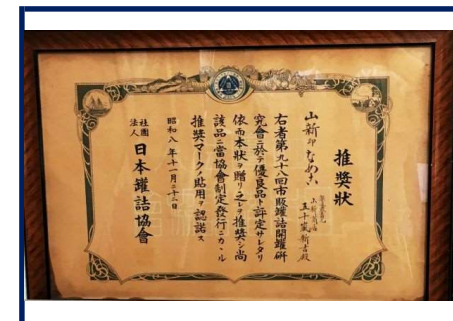 推奬狀
山新印なめこ
五十嵐新吉殿
右者第九十八回市販罐詰開罐硏
究會ニ於テ優良品ト評定サレタリ
依而本狀ヲ贈リ之レヲ推奬シ尚
該品ニ當協會制定發行ニカヽル
推奬マークノ貼用ヲ認諾ス
昭和八年十一月二十二日
社團
法人
日本罐詰協會